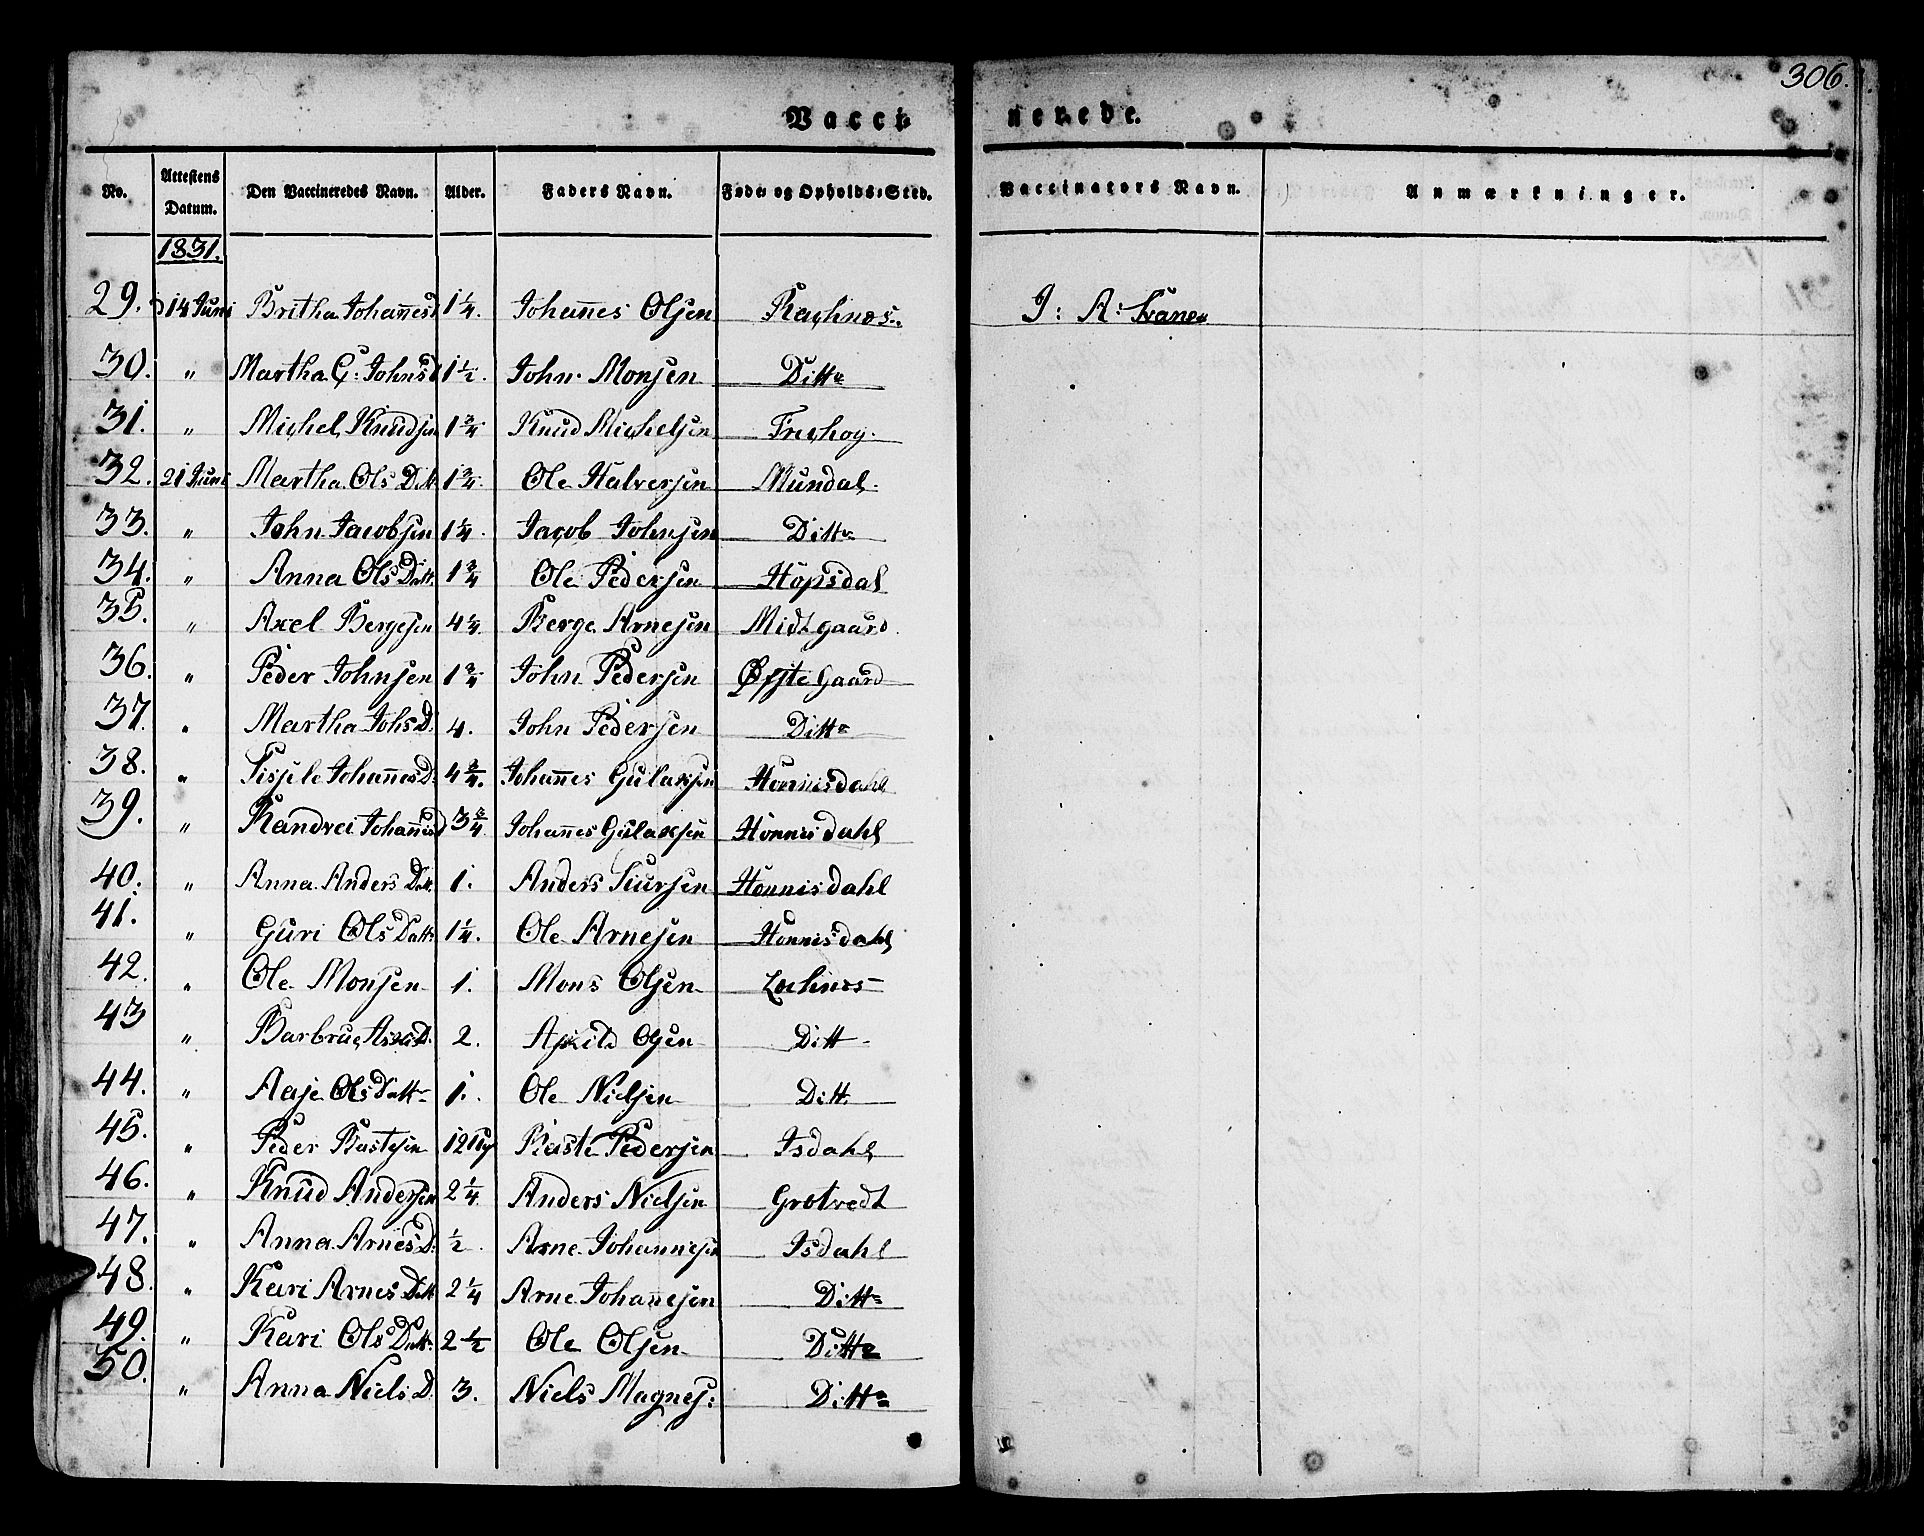 306.
Vaccinerede.
No. Attestens Datum. Den Vaccineredes Navn. Alder. Faders Navn. Føde- og Opholds-Sted. Vaccinators Navn. Anmærkninger.
1831.
29. 14 Juni Britha Johan̄esd 1 1/4. Johan̄es Olsen J: A:
30. " Martha G: Johnsd 1 1/2. John Monsen Ditto
31. " Michel Knudsen 1 3/4 Knud Michelsen
32. 21 Juni Martha Ols Dtt 1 3/4. Ole Halversen Mundal.
33. " John Jacobsen 1 1/4. Jacob Johnsen Ditto
34. " Anna Ols Datt. 1 3/4 Ole Pedersen Hopsdal
35. " Axel Bergesen 4 1/4. Berge Arnesen Midtgaard.
36. " Peder Johnsen 1 3/4 John Pedersen Øfste Gaard
37. " Martha Johs D. 4. John Pedersen Ditto
38. " Sissele Johan̄es D. 4 3/4. Johan̄es Gulaksen Honnisdahl
39. " Randvei Johan̄esd 3 3/4 Johan̄es Gulaksen Honnisdahl
40. " Anna Anders Datt. 1. Anders Siursen Honnisdahl
41. " Guri Ols Datt. 1 1/4. Ole Arnesen Honnisdahl
42. " Ole Monsen 1. Mons Olsen
43 " Barbrue D. 2. Olsen Ditt
44. " Aase Ols Datt 1. Ole Nielsen Ditt.
45. " Peder Bastesen 12 Baste Pedersen Isdahl
46. " Knud Andersen 2 1/4. Anders Nielsen Grotvedt
47. " Anna Arnes D. 1/2. Arne Johannesen Isdahl
48. " Kari Arnes Datt 2 1/4 Arne Johan̄esen Ditto
49. " Kari Ols Datt. 2 1/2 Ole Olsen Ditto
50. " Anna Niels D. 3. Niels Magnes: Ditto